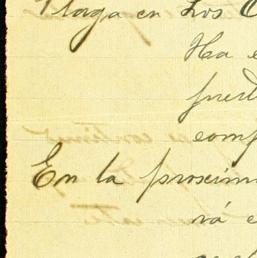 Plaga en Los
Ha e
puer
comp
En la proxim
rá e